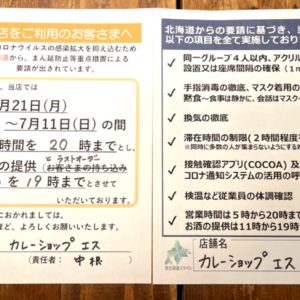 店をご利用のお客さまへ
ロナウイルスの感染拡大を抑え込むため
道から、まん延防止等重点措置による
要請が出されています。
、当店では
月21日(月)
～7月11日(日)の間
時間を 20 時までとし、
の提供(とラストオーダー お客さまの持ち込み
)を19時までとさせて
いただいております。
におかれましては、
ほど、よろしくお願いいたします。
カレーショップ エス
(責任者: 中根 )
北海道からの要請に基づき、当
以下の項目を全て実施しており
同一グループ4人以内、アクリル
設置又は座席間隔の確保
手指消毒の徹底、マスク着用の
黙食～食事は静かに、会話はマスク
換気の徹底
滞在時間の制限(2時間程度を
接触確認アプリ(COCOA)及
コロナ通知システムの活用の呼
検温など従業員の体調確認
営業時間は5時から20時まで
お酒の提供は11時から19時
店舗名
カレーショップ エス